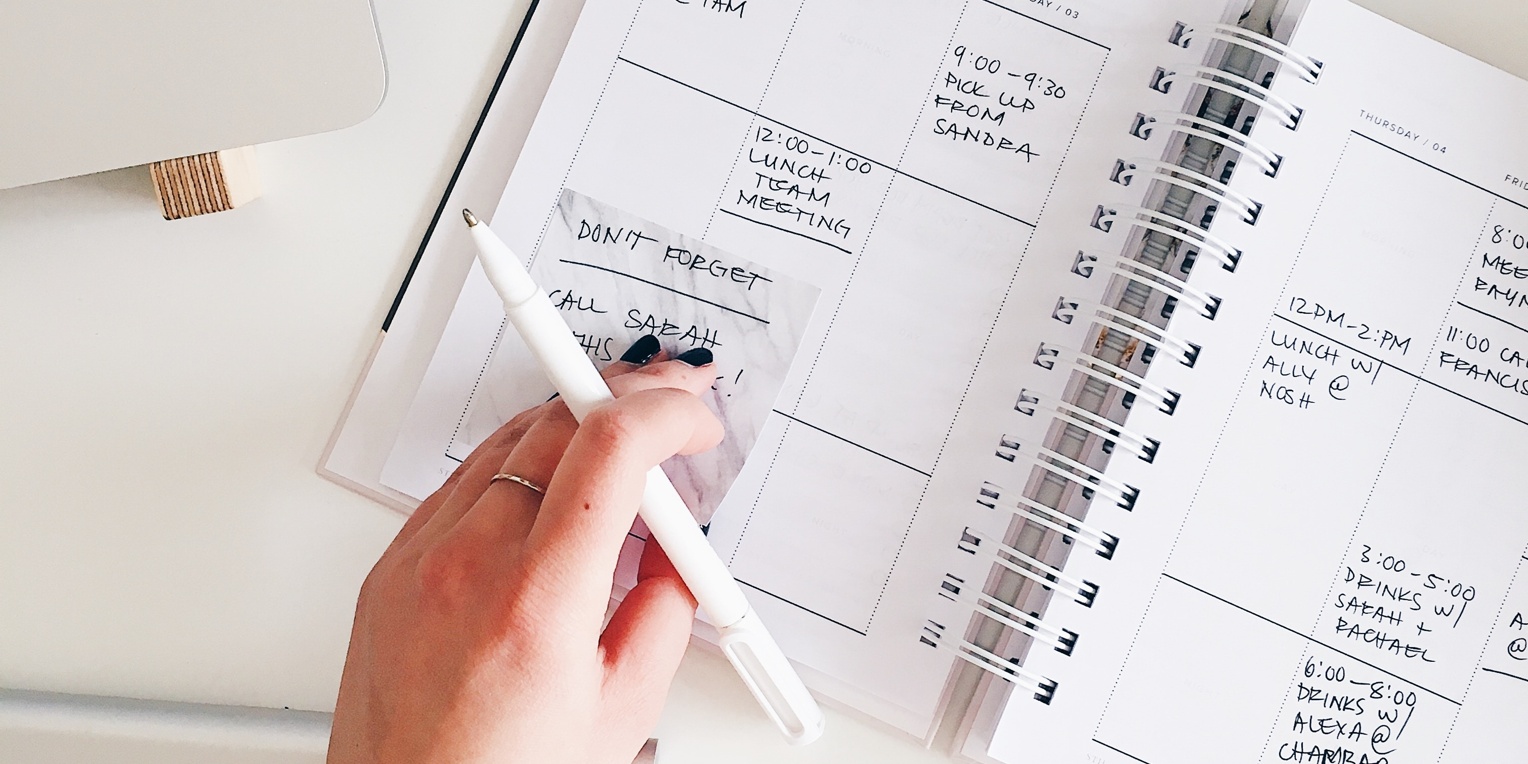 1AM
DAY / 03
9:00 - 9:30
PICK UP
FROM
SANDRA
12:00-1:00
LUNCH
TEAM
MEETING
DON'T FORGET
CALL SARAH
THURSDAY / 04
12PM-2:PM
LUNCH W/
ALLY @
NOSH
11:00
3:00-5:00
DRINKS W/
SARAH +
RACHAEL
6:00-8:00
DRINKS W/
ALEXA @